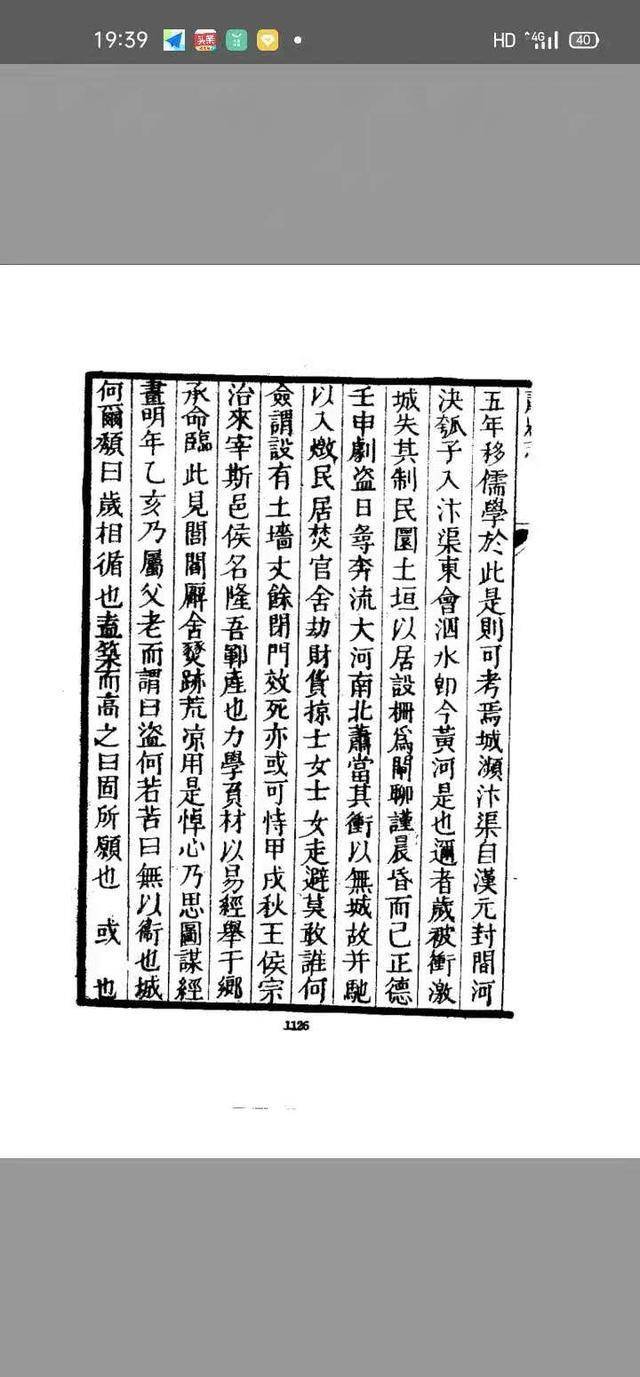 19:39
头条
HD 4G 40
五年移儒學於此是則可考焉城瀕汴渠自漢元封間河
決瓠子入汴渠東會泗水卽今黃河是也邇者歲被衝激
城失其制民圜土垣以居設柵爲閘聊謹晨昏而已正德
壬申劇盜日尋奔流大河南北蕭當其衝以無城故并馳
以入燬民居焚官舍劫財貨掠士女士女走避莫敢誰何
僉謂設有土墻丈餘閉門效死亦或可恃甲戌秋王侯宗
治來宰斯邑侯名隆吾鄆產也力學負材以易經舉于鄉
承命臨此見閭閻廨舍燹跡荒凉用是悼心乃思圖謀經
畫明年乙亥乃屬父老而謂曰盜何若苦曰無以衞也城
何爾頹曰歲相循也盍築而高之曰固所願也 或 也
1126